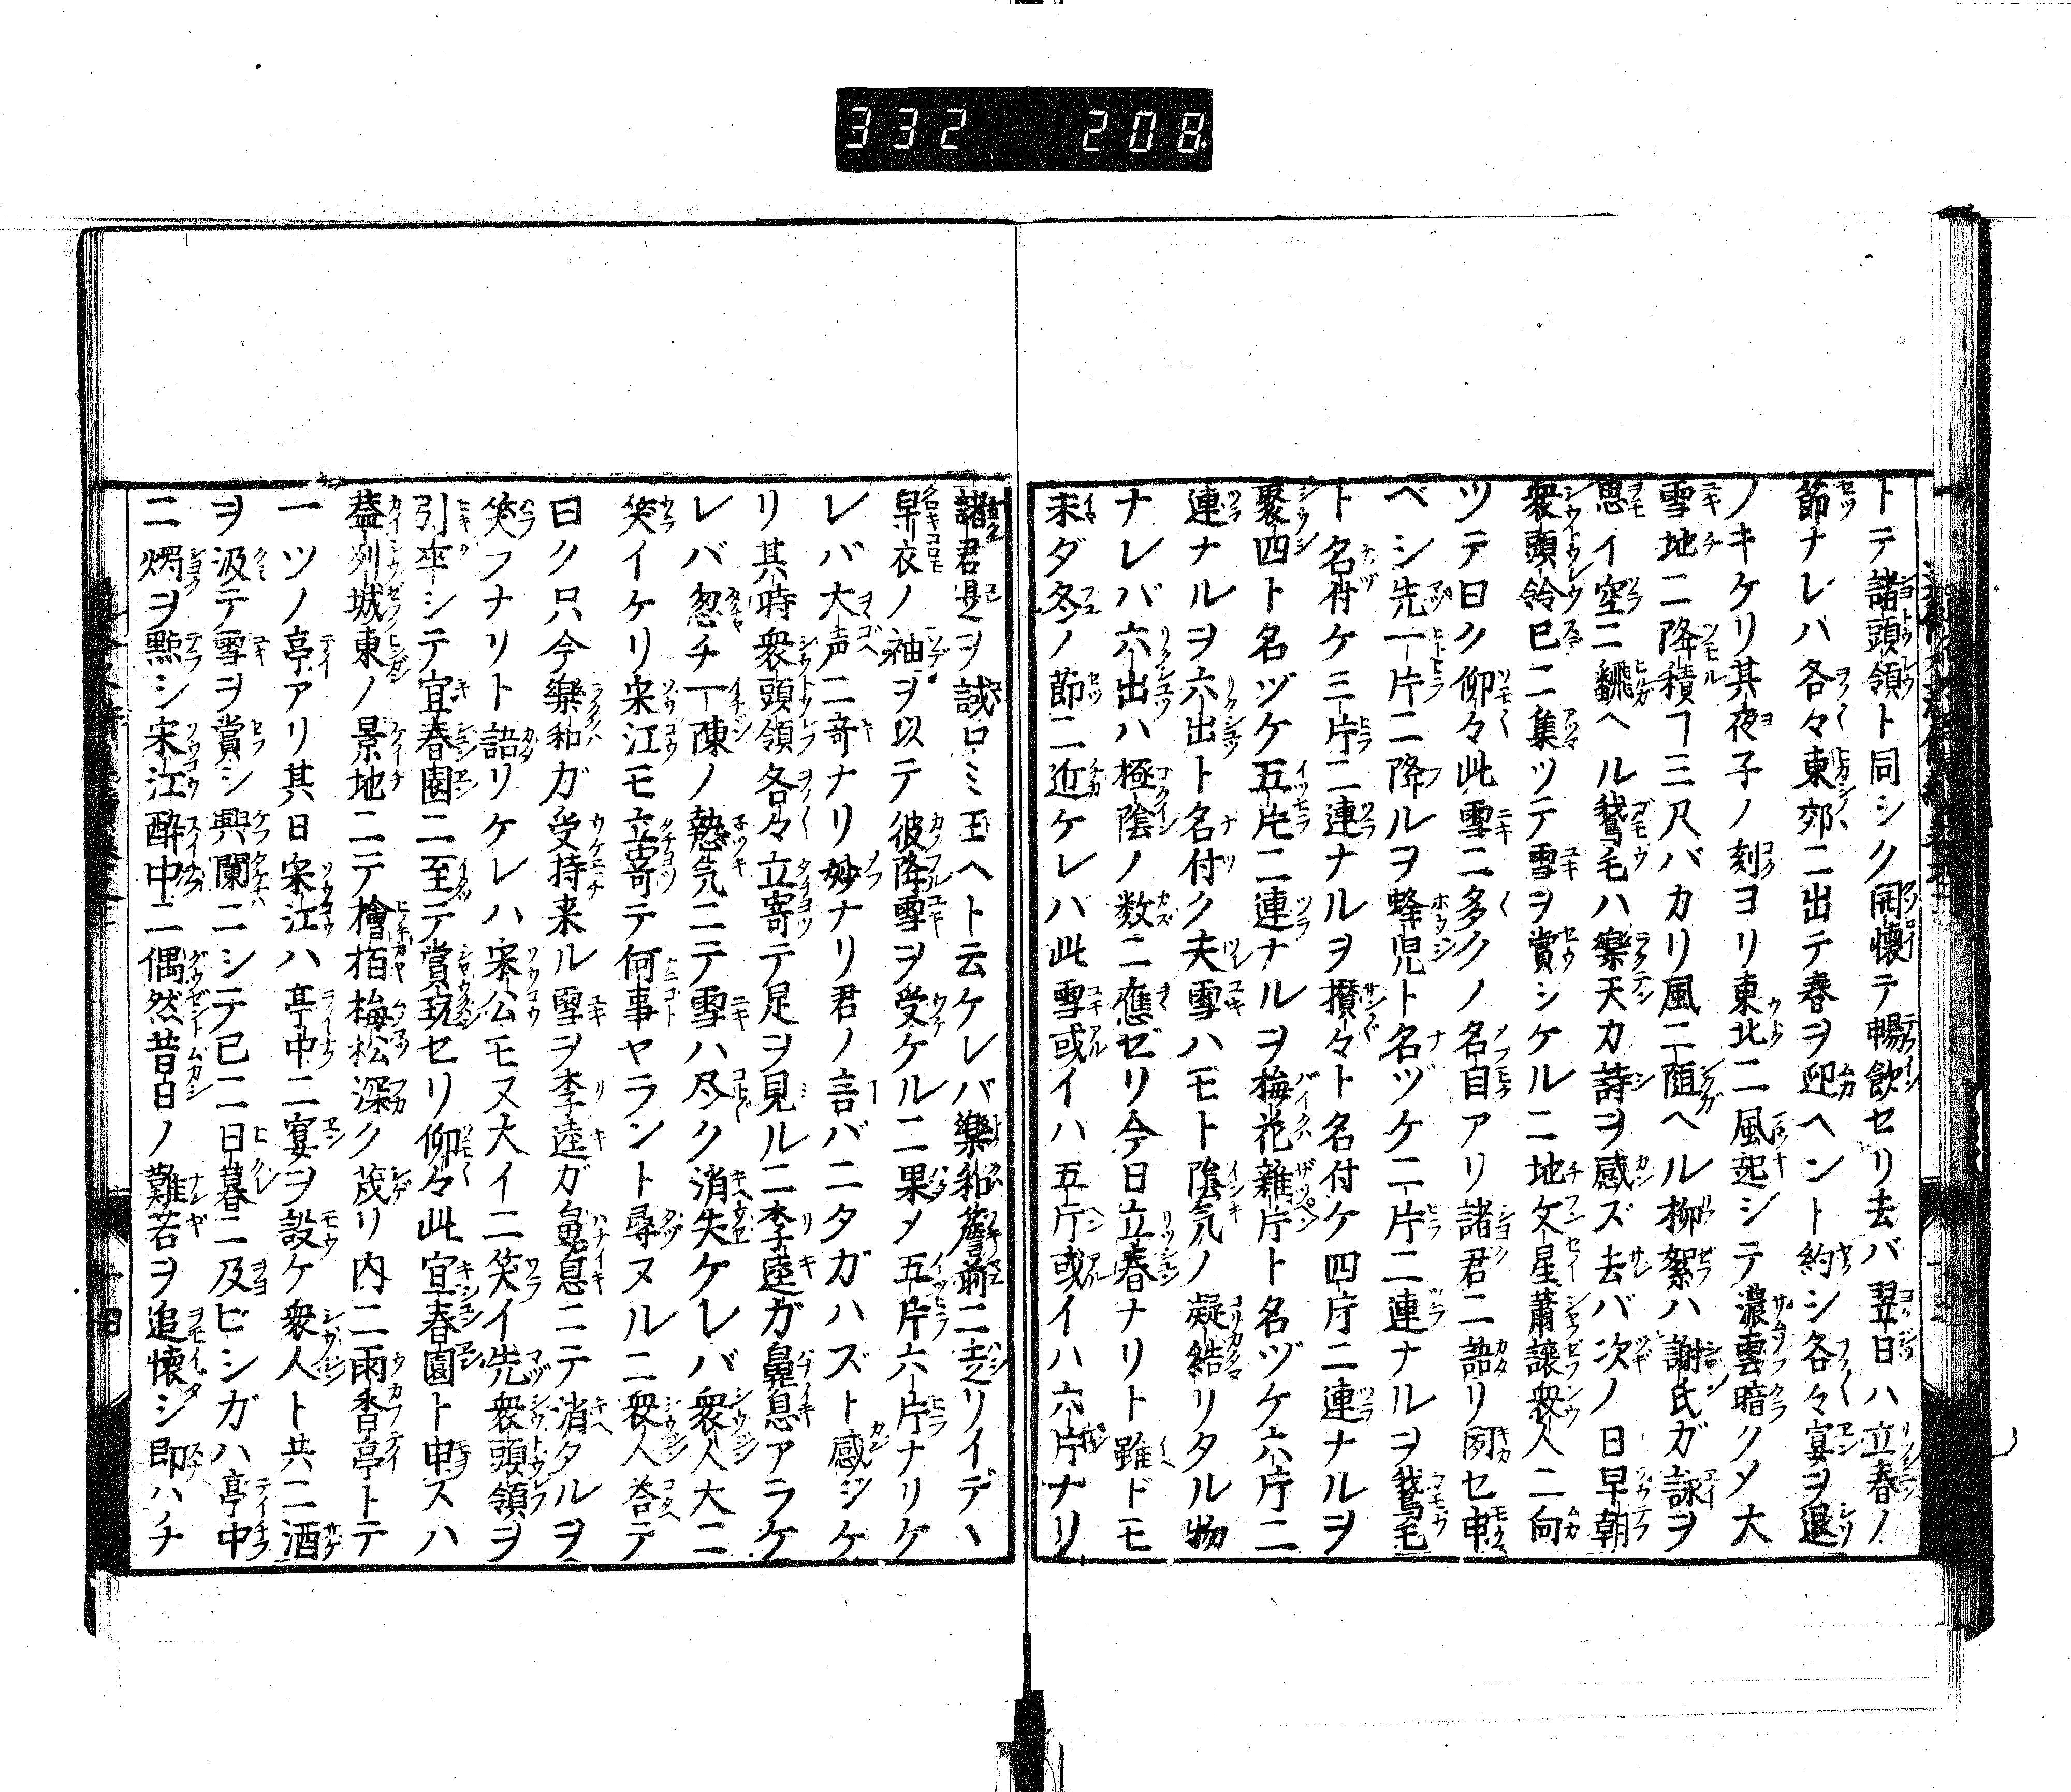 332 208
トテ諸頭領ト同シク開懐テ暢飲セリ去バ翌日ハ立春ノ
節ナレバ各々東郊ニ出テ春ヲ迎ヘント約シ各々宴ヲ退
ノキケリ其夜子ノ刻ヨリ東北ニ風起シテ濃雲暗クメ大
雪地ニ降積ヿ三尺バカリ風ニ随ヘル柳絮ハ謝氏ガ詠ヲ
思イ空ニ飜ヘル鵞毛ハ樂天カ詩ヲ感ズ去バ次ノ日早朝
衆頭領已ニ集ツテ雪ヲ賞シケルニ地文星蕭譲衆人ニ向
ツテ曰ク仰々此雪ニ多クノ名目アリ諸君ニ語リ聞セ申
ベシ先一片ニ降ルヲ蜂児ト名ヅケ二片ニ連ナルヲ鵞毛
ト名付ケ三片ニ連ナルヲ攅々ト名付ケ四片ニ連ナルヲ
聚四ト名ヅケ五片ニ連ナルヲ梅花雜片ト名ヅケ六片ニ
連ナルヲ六出ト名付ク夫雪ハモト陰気ノ凝結リタル物
ナレバ六出ハ極陰ノ数ニ應ゼリ今日立春ナリト雖ドモ
未ダ冬ノ節ニ近ケレバ此雪或イハ五片或イハ六片ナリ
諸君是ヲ試ロミ玉ヘト云ケレバ樂和簷前ニ走リイデヽ
皁衣ノ袖ヲ以テ彼降雪ヲ受ケルニ果メ五片六片ナリケ
レバ大声ニ奇ナリ妙ナリ君ノ言バニタガハズト感ジケ
リ其時衆頭領各々立寄テ足ヲ見ルニ李逵ガ鼻息アラケ
レバ忽チ一陳ノ熱気ニテ雪ハ尽ク消失ケレバ衆人大ニ
笑イケリ宋江モ立寄テ何事ヤラント尋ヌルニ衆人荅テ
曰ク只今樂和ガ受持来ル雪ヲ李逵ガ鼻息ニテ消タルヲ
笑フナリト語リケレハ宋公モ又大イニ笑イ先衆頭領ヲ
引卒シテ宜春園ニ至テ賞玩セリ仰々此宜春園ト申スハ
葢列城東ノ景地ニテ檜栢梅松深ク茂リ内ニ雨香亭トテ
一ツノ亭アリ其日宋江ハ亭中ニ宴ヲ設ケ衆人ト共ニ酒
ヲ汲テ雪ヲ賞シ興闌ニシテ已ニ日暮ニ及ビシガハ亭中
ニ燭ヲ點シ宋江酔中ニ偶然昔日ノ難若ヲ追懐シ即ハチ